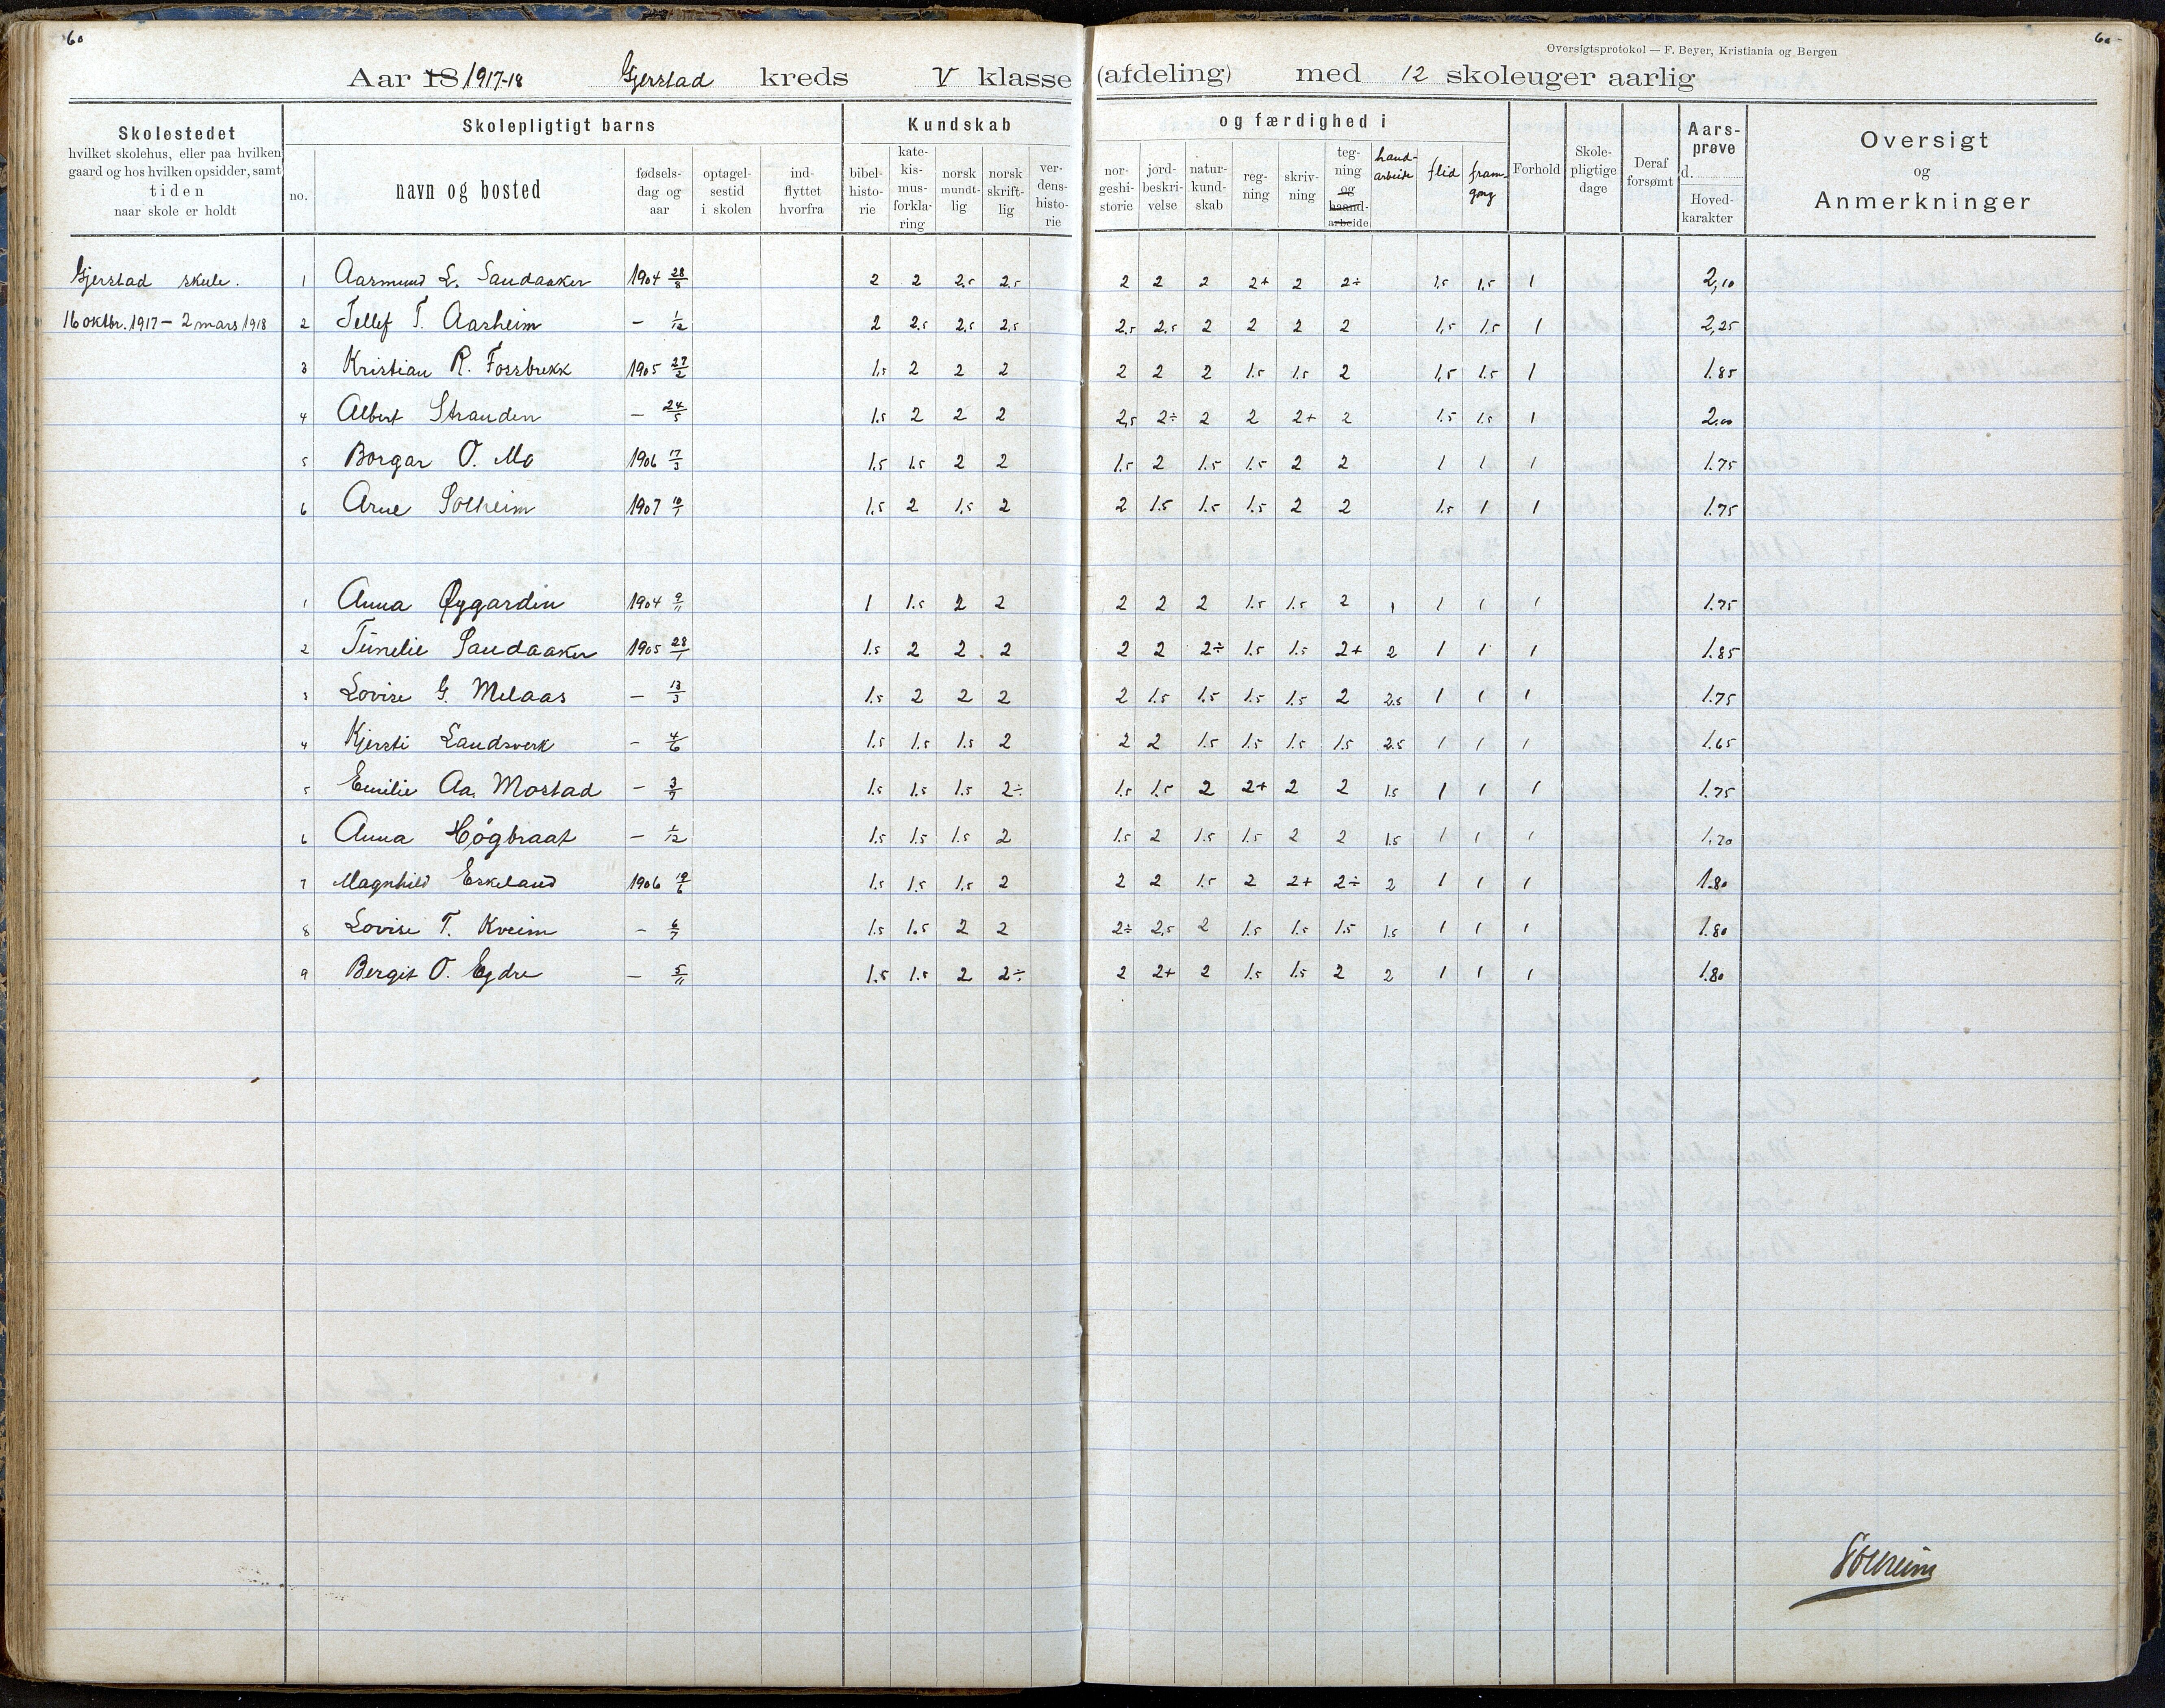 60
60
Oversigtsprotokol — F. Beyer, Kristiania og Bergen
Aar 18 1917-18 Gjerstad kreds V klasse (afdeling) med 12 skoleuger aarlig
Skolestedet
hvilket skolehus, eller paa hvilken
gaard og hos hvilken opsidder, samt
tiden
naar skole er holdt
Skolepligtigt barns
no.
navn og bosted
fødsels-
dag og
aar
optagel-
sestid
i skolen
ind-
flyttet
hvorfra
Kundskab
bibel-
histo-
rie
kate-
kis-
mus-
forkla-
ring
norsk
mundt-
lig
norsk
skrift-
lig
ver-
dens-
histo-
rie
og færdighed i
nor-
geshi-
storie
jord-
beskri-
velse
natur-
kund-
skab
reg-
ning
skriv-
ning
teg-
ning
og
haand-
arbeide
hand-
arbeide
flid
fram-
gang
Forhold
Skole-
pligtige
dage
Deraf
forsømt
Aars-
prøve
d.
Hoved-
karakter
Oversigt
og
Anmerkninger
Gjerstad skule. 1 Aasmund L. Sandaaker 1904 28/8 2 2 2,5 2,5 2 2 2 2+ 2 2÷ 1,5 1,5 1 2,10
16 oktbr. 1917 – 2 mars 1918 2 Tellef T. Aasheim — 1/12 2 2,5 2,5 2,5 2,5 2,5 2 2 2 2 1,5 1.5 1 2,25
3 Kristian R. Fossbrekk 1905 27/2 1.5 2 2 2 2 2 2 1.5 1.5 2 1,5 1.5 1 1.85
4 Albert Stranden — 24/5 1.5 2 2 2 2,5 2÷ 2 2 2+ 2 1.5 1.5 1 2.00
5 Borgar O. Mo 1906 17/3 1.5 1.5 2 2 1.5 2 1.5 1.5 2 2 1 1 1 1.75
6 Arne Solheim 1907 10/1 1.5 2 1.5 2 2 1.5 1.5 1.5 2 2 1.5 1 1 1.75
1 Anna Øygarden 1904 9/11 1 1.5 2 2 2 2 2 1.5 1.5 2 1 1 1 1 1.75
2 Tinelie Sandaaker 1905 28/1 1.5 2 2 2 2 2 2÷ 1.5 1.5 2+ 2 1 1 1 1.85
3 Lovise G. Melaas — 13/3 1.5 2 2 2 2 1.5 1.5 1.5 1.5 2 2.5 1 1 1 1.75
4 Kjersti Landsverk – 4/6 1.5 1.5 1.5 2 2 2 1.5 1.5 1.5 1.5 2.5 1 1 1 1.65
5 Emilie Aa. Mostad – 3/7 1.5 1.5 1.5 2÷ 1.5 1.5 2 2+ 2 2 1.5 1 1 1 1.75
6 Anna Høgbraat – 1/12 1.5 1.5 1.5 2 1.5 2 1.5 1.5 2 2 1.5 1 1 1 1.70
7 Magnhild Eskeland 1906 19/6 1.5 1.5 1.5 2 2 2 1.5 2 2+ 2÷ 2 1 1 1 1.80
8 Lovise T. Kveim – 6/7 1.5 1.5 2 2 2÷ 2,5 2 1.5 1.5 1.5 1.5 1 1 1 1.80
9 Bergit O. Egdre — 5/11 1.5 1.5 2 2÷ 2 2+ 2 1.5 1.5 2 2 1 1 1 1.80
Solheim